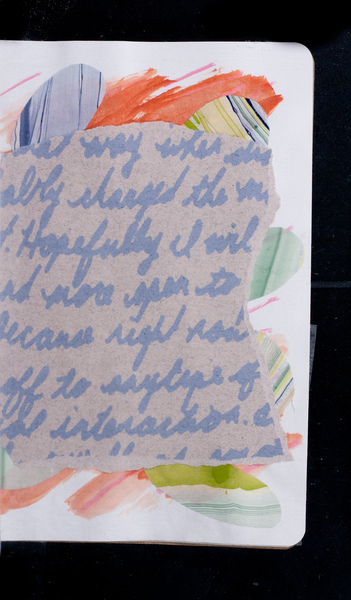 way when
ably charged the
. Hopefully I will
more open to
because right now
off to anytype of
interaction.